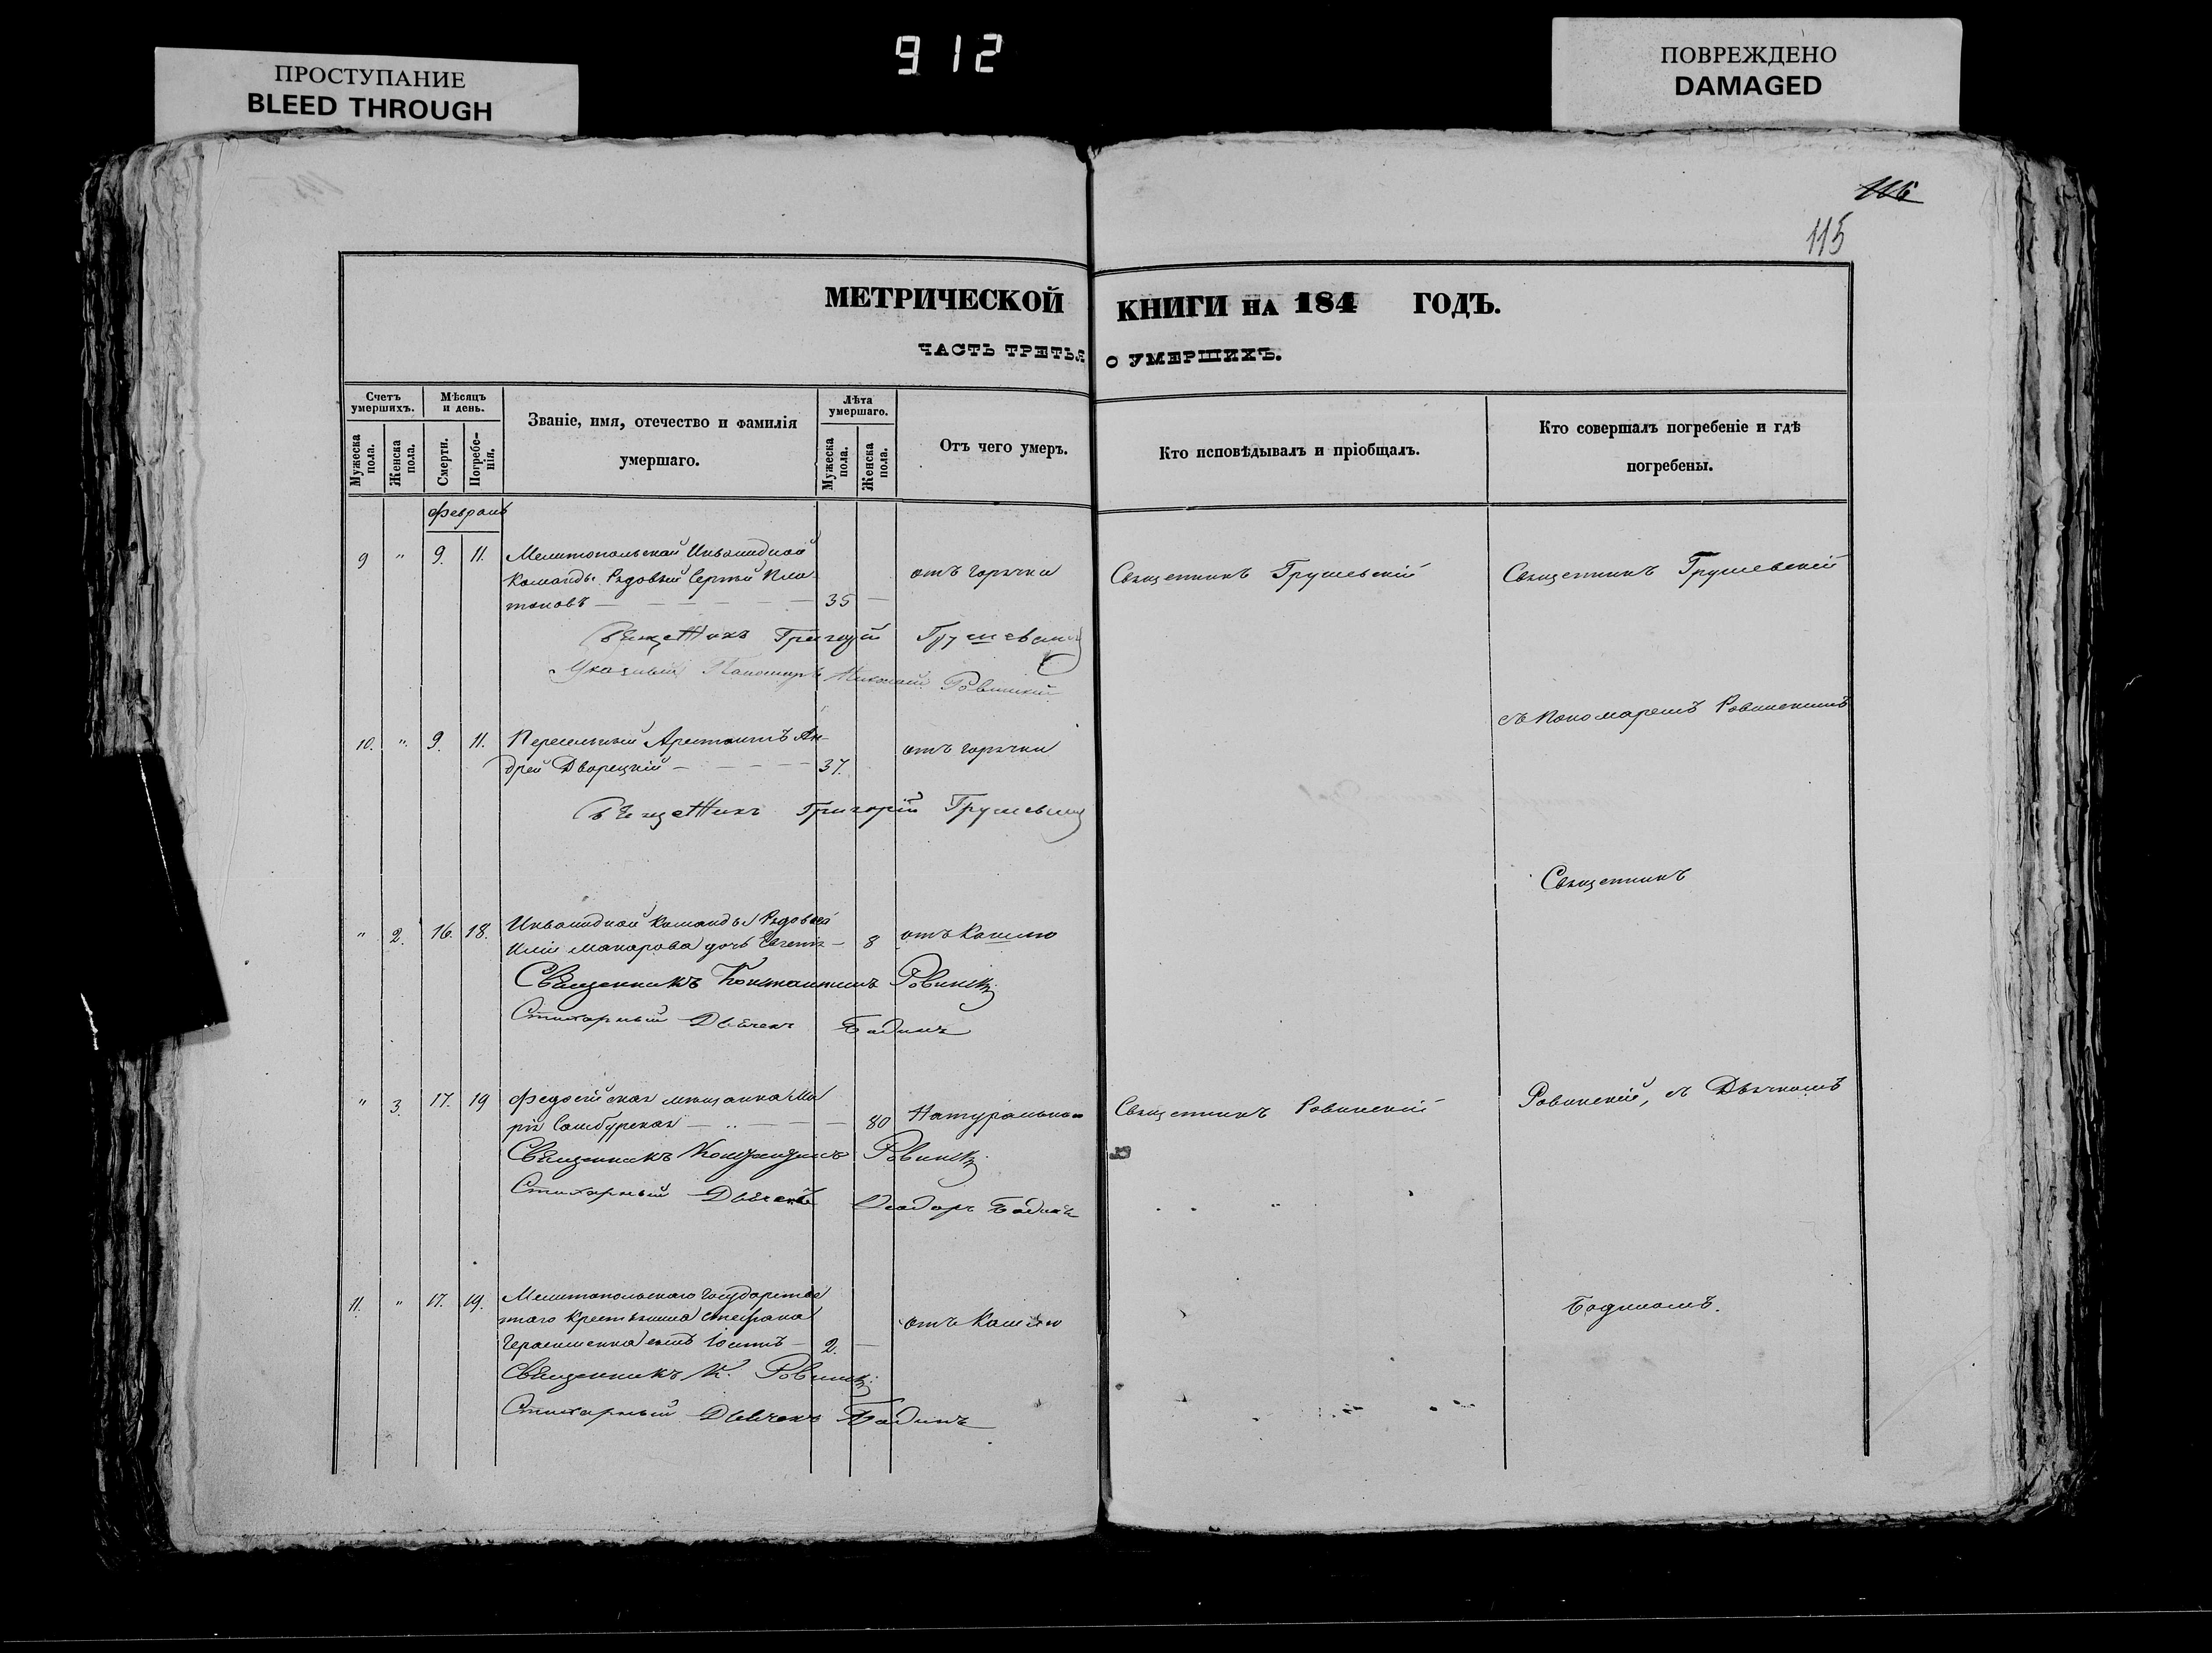 912
ПРОСТУПАНИЕ
BLEED THROUGH
ПОВРЕЖДЕНО
DAMAGED
116
115
МЕТРИЧЕСКОЙ КНИГИ НА 184 ГОДЪ.
ЧАСТЬ ТРЕТЬЯ О УМЕРШИХЪ.
Счетъ умершихъ.
Мужеска пола.
Женска пола.
Мѣсяцъ и день.
Смерти.
Погребе-
нія.
Званіе, имя, отечество и фамилія
умершаго.
Лѣта умершаго.
Мужеска пола.
Женска пола.
Отъ чего умеръ.
Кто исповѣдывалъ и пріобщалъ.
Кто совершалъ погребеніе и гдѣ
погребены.
Февраль
9 " 9. 11. Мелитопольской Инвалидной
Команды Рядовый Сергей Пла-
тоновъ 35 отъ горячки Священникъ Грушевскій Священникъ Грушевскій
Священникъ Григорій Грушевскій
Указный Пономарь Николай Ровинскій
съ Пономаремъ Ровинскимъ
10. " 9. 11. Пересыльный Арестантъ Ан-
дрей Дворецкій 37. отъ горячки
Священникъ Григорій Грушевскій
Священникъ
" 2. 16. 18. Инвалидной Команды Рядоваго
Иліи Макарова дочь Евгенія 8 отъ Кашлю
Священникъ Константинъ Ровинскій
Стихарный Дьячекъ Бадинъ
" 3. 17. 19 Федосійская мещанка Ма
рія Самбурская 80 Натурально Священникъ Ровинскій Ровинскій, съ Дьячкомъ
Священникъ Константинъ Ровинскій
Стихарный Дьячекъ Феодоръ Бадинъ
11. " 17. 19. Мелитопольскаго Государствен
наго Крестьянина Стефана
Герасименка сынъ 2. отъ Кашлю Бадиномъ.
Священникъ К. Ровинскій
Стихарный Дьячекъ Бадинъ